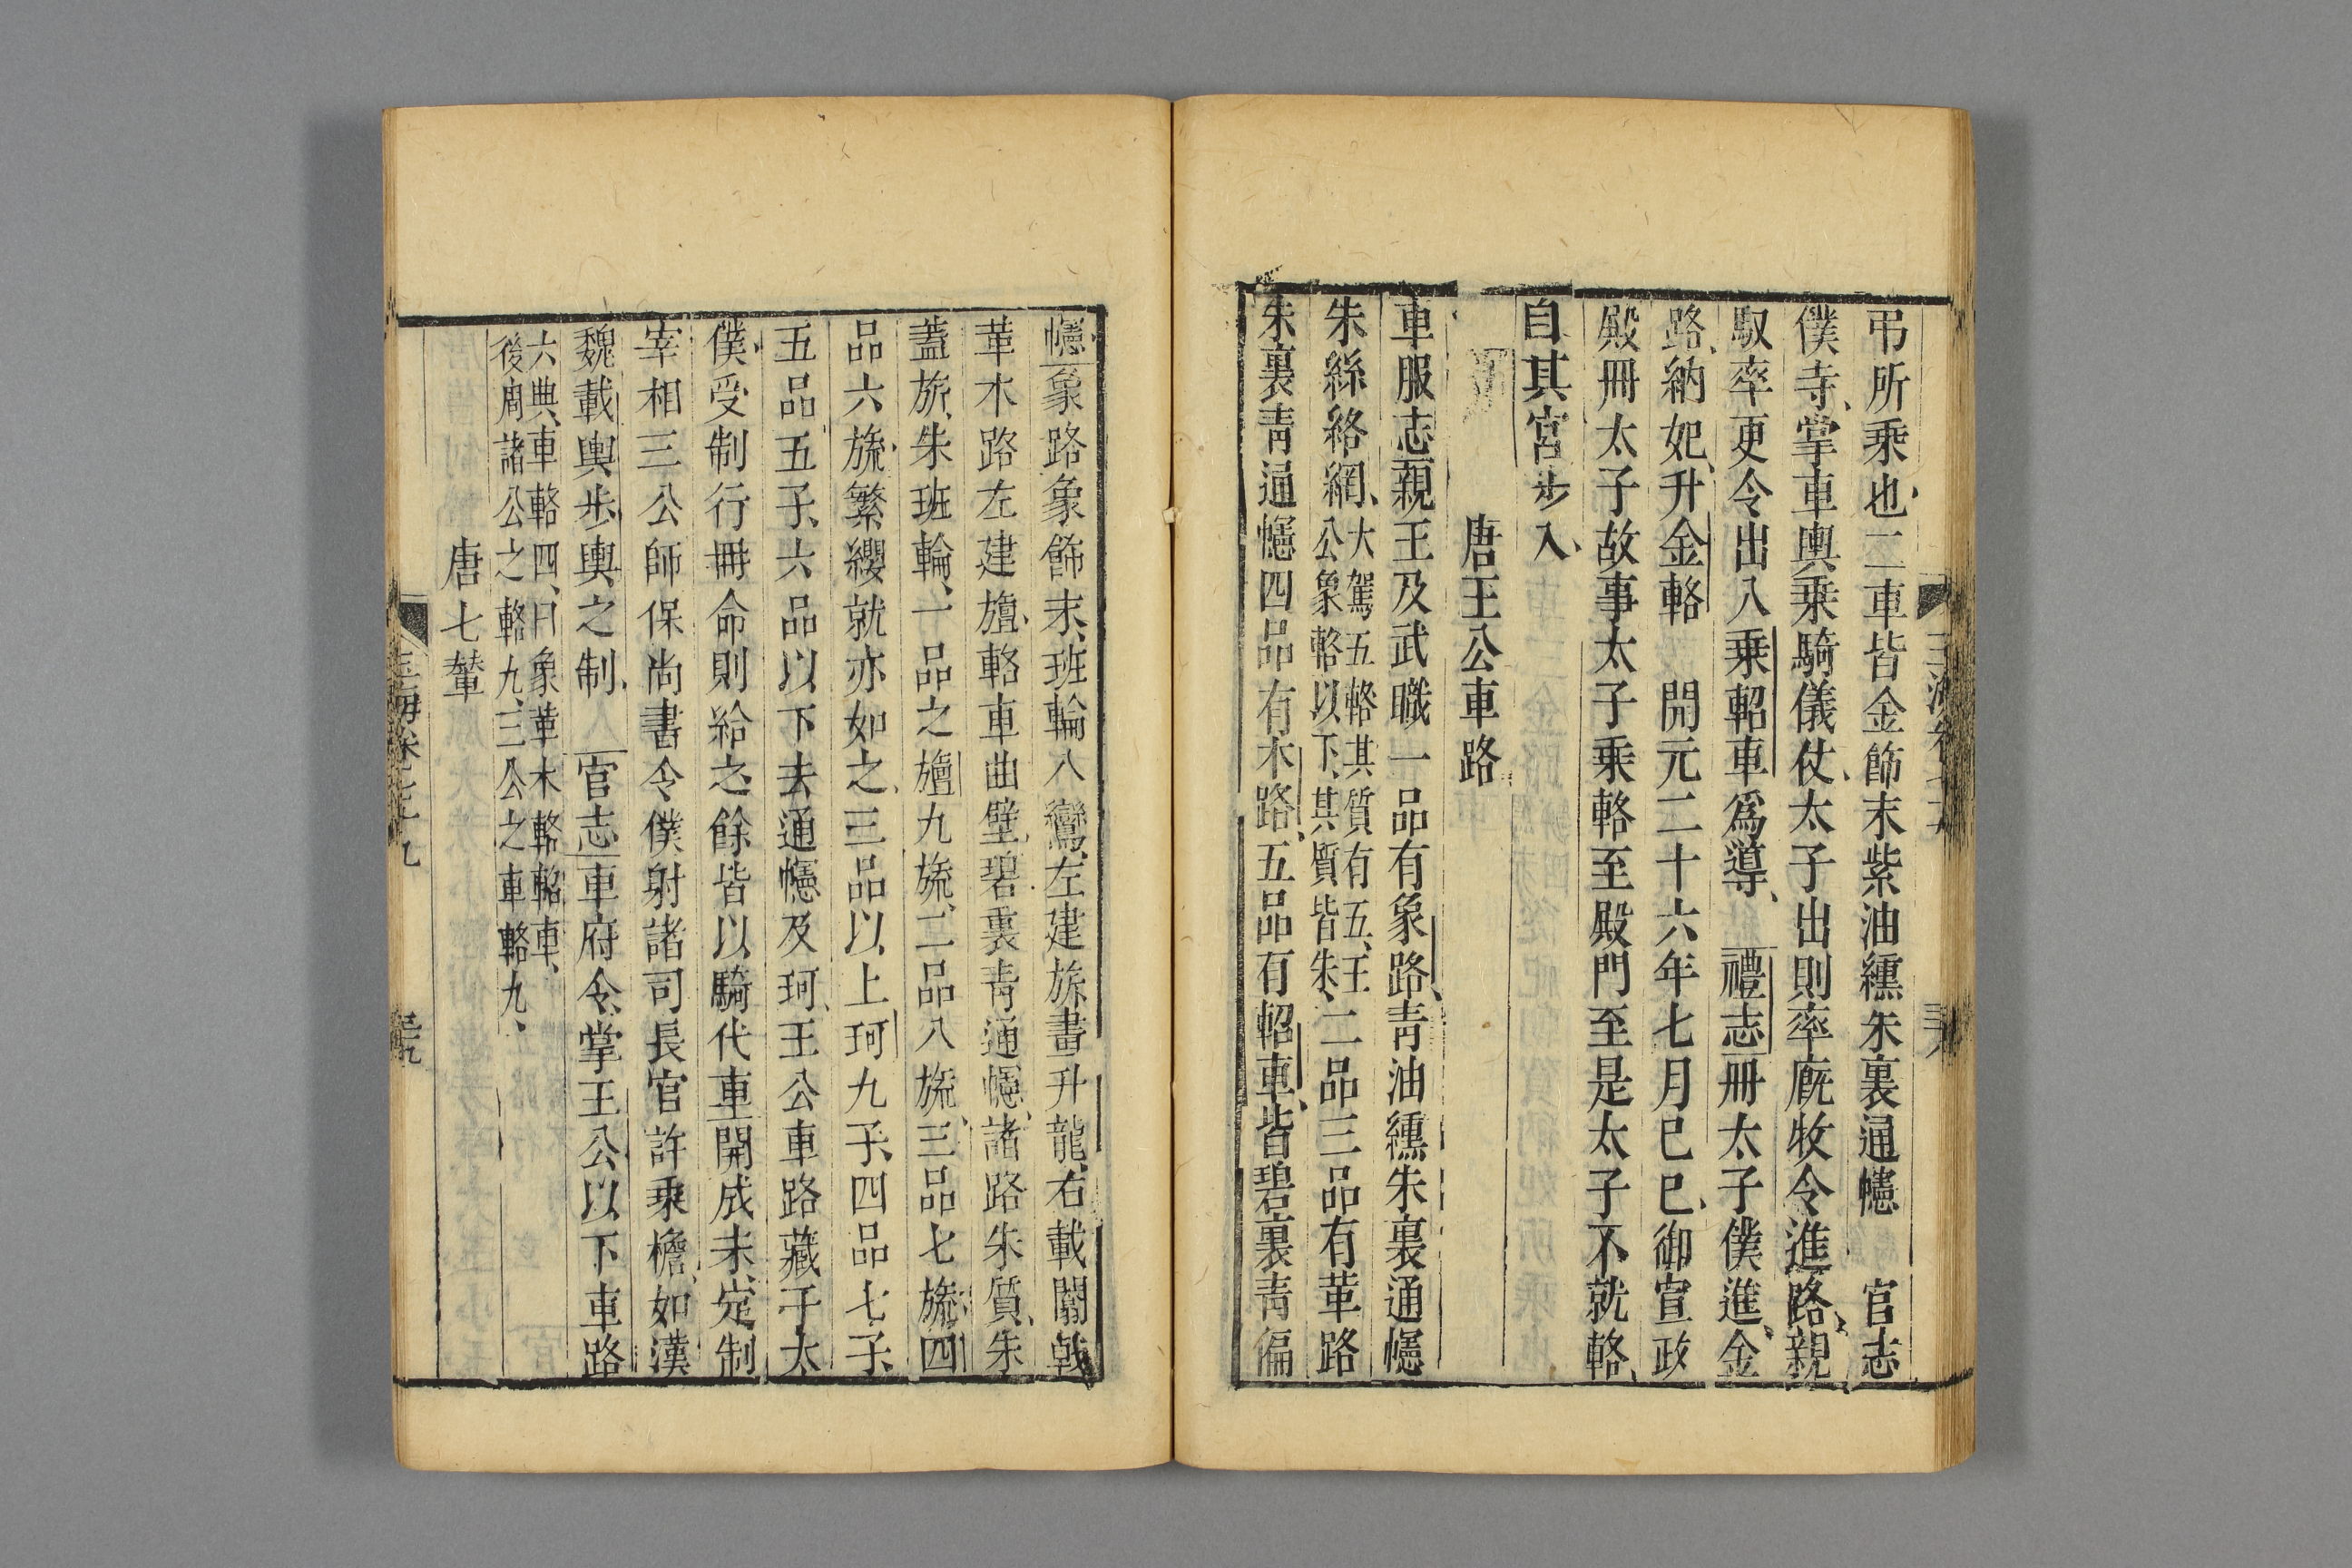 弔所乘也二車皆金飾末紫油纁朱裏通幰　官志
僕寺掌車輿乘騎儀仗太子出則率廐牧令進路親
馭率更令出入乘軺車爲導　禮志冊太子僕進金
路納妃升金輅　開元二十六年七月己巳御宣政
殿冊太子故事太子乘輅至殿門至是太子不就輅
自其宮步入
唐王公車路
車服志親王及武職一品有象路青油纁朱裏通幰
朱絲絡網大駕五輅其質有五王
公象輅以下其質皆朱二品三品有革路
朱裏青通幰四品有木路五品有軺車皆碧裏青偏
幰象路象飾末班輪八鸞左建旂畫升龍右載闟戟
革木路左建旜軺車曲壁碧裏青通幰諸路朱質朱
蓋旂朱班輪一品之旜九旒二品八旒三品七旒四
品六旒繁纓就亦如之三品以上珂九子四品七子
五品五子六品以下去通幰及珂王公車路藏于太
僕受制行冊命則給之餘皆以騎代車開成末定制
宰相三公師保尚書令僕射諸司長官許乘檐如漢
魏載輿步輿之制　官志車府令掌王公以下車路
六典車輅四曰象革木輅軺車
後周諸公之輅九三公之車輅九
唐七輦
玉海卷七十九